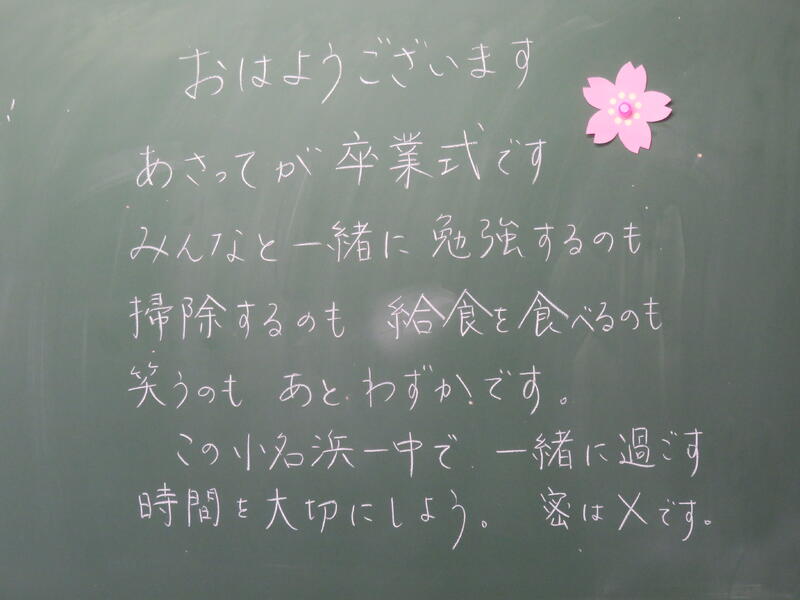 おはようございます
あさってが卒業式です
みんなと一緒に勉強するのも
掃除するのも 給食を食べるのも
笑うのも あとわずかです。
この小名浜一中で 一緒に過ごす
時間を大切にしよう。 密は×です。